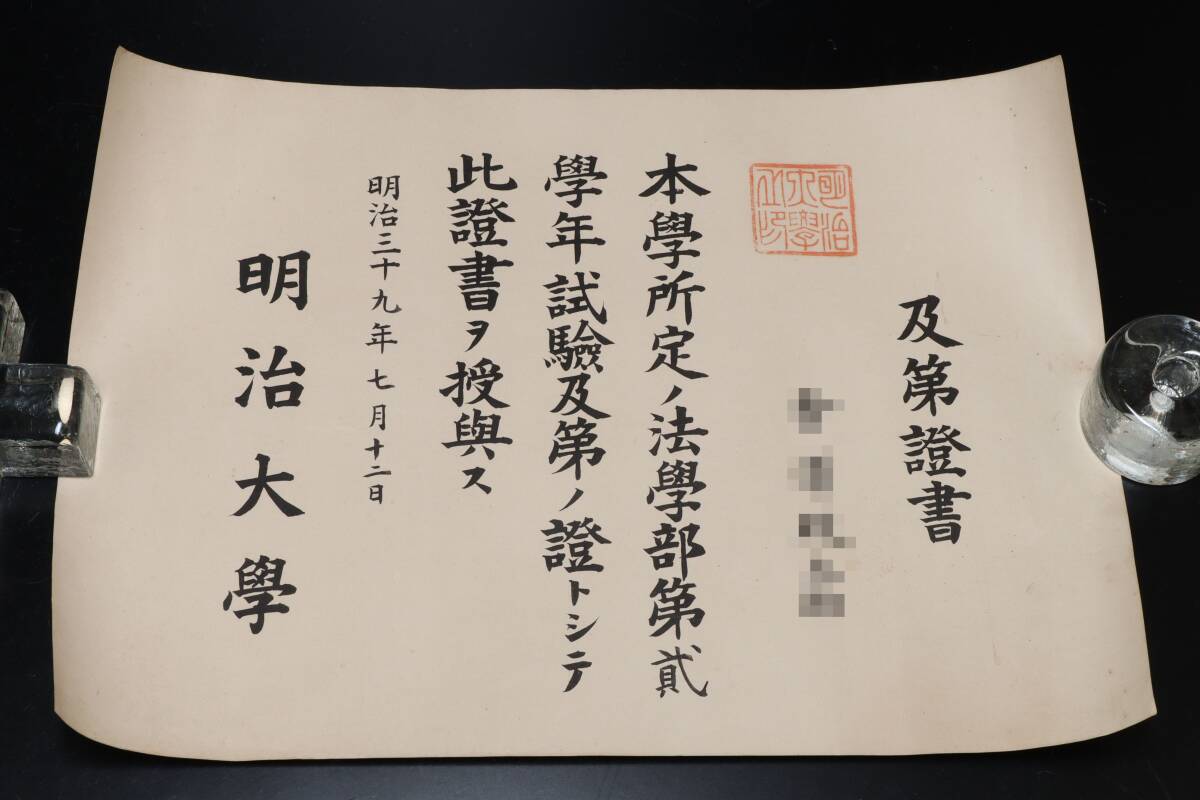 及第證書
明治大學之印
本學所定ノ法學部第貳
學年試驗及第ノ證トシテ
此證書ヲ授與ス
明治三十九年七月十二日
明治大學